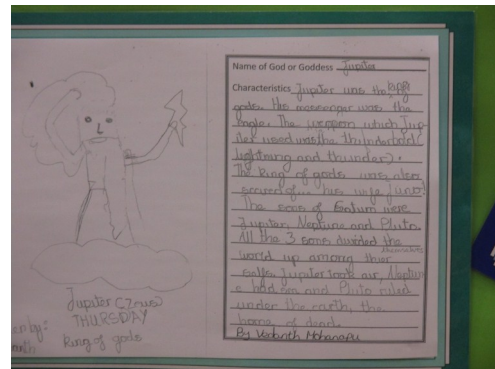 Name of God or Goddess Jupiter
Characteristics Jupiter was the king
gods. His messenger was the
eagle. The weapon which Jup
iter used was the thunderbolt(
lightning and thunder).
The king of gods was also
scared of... his wife Juno!
The sons of were
Jupiter, Neptune and Pluto.
All the 3 sons divided the
themselves
world up among thier
selfs. Jupiter took air, Neptun
e had sea and Pluto ruled
under the earth, the
home of dead.
By Vedanth Mohanapu
Jupiter (Zeus)
THURSDAY
King of gods
en by:
anth